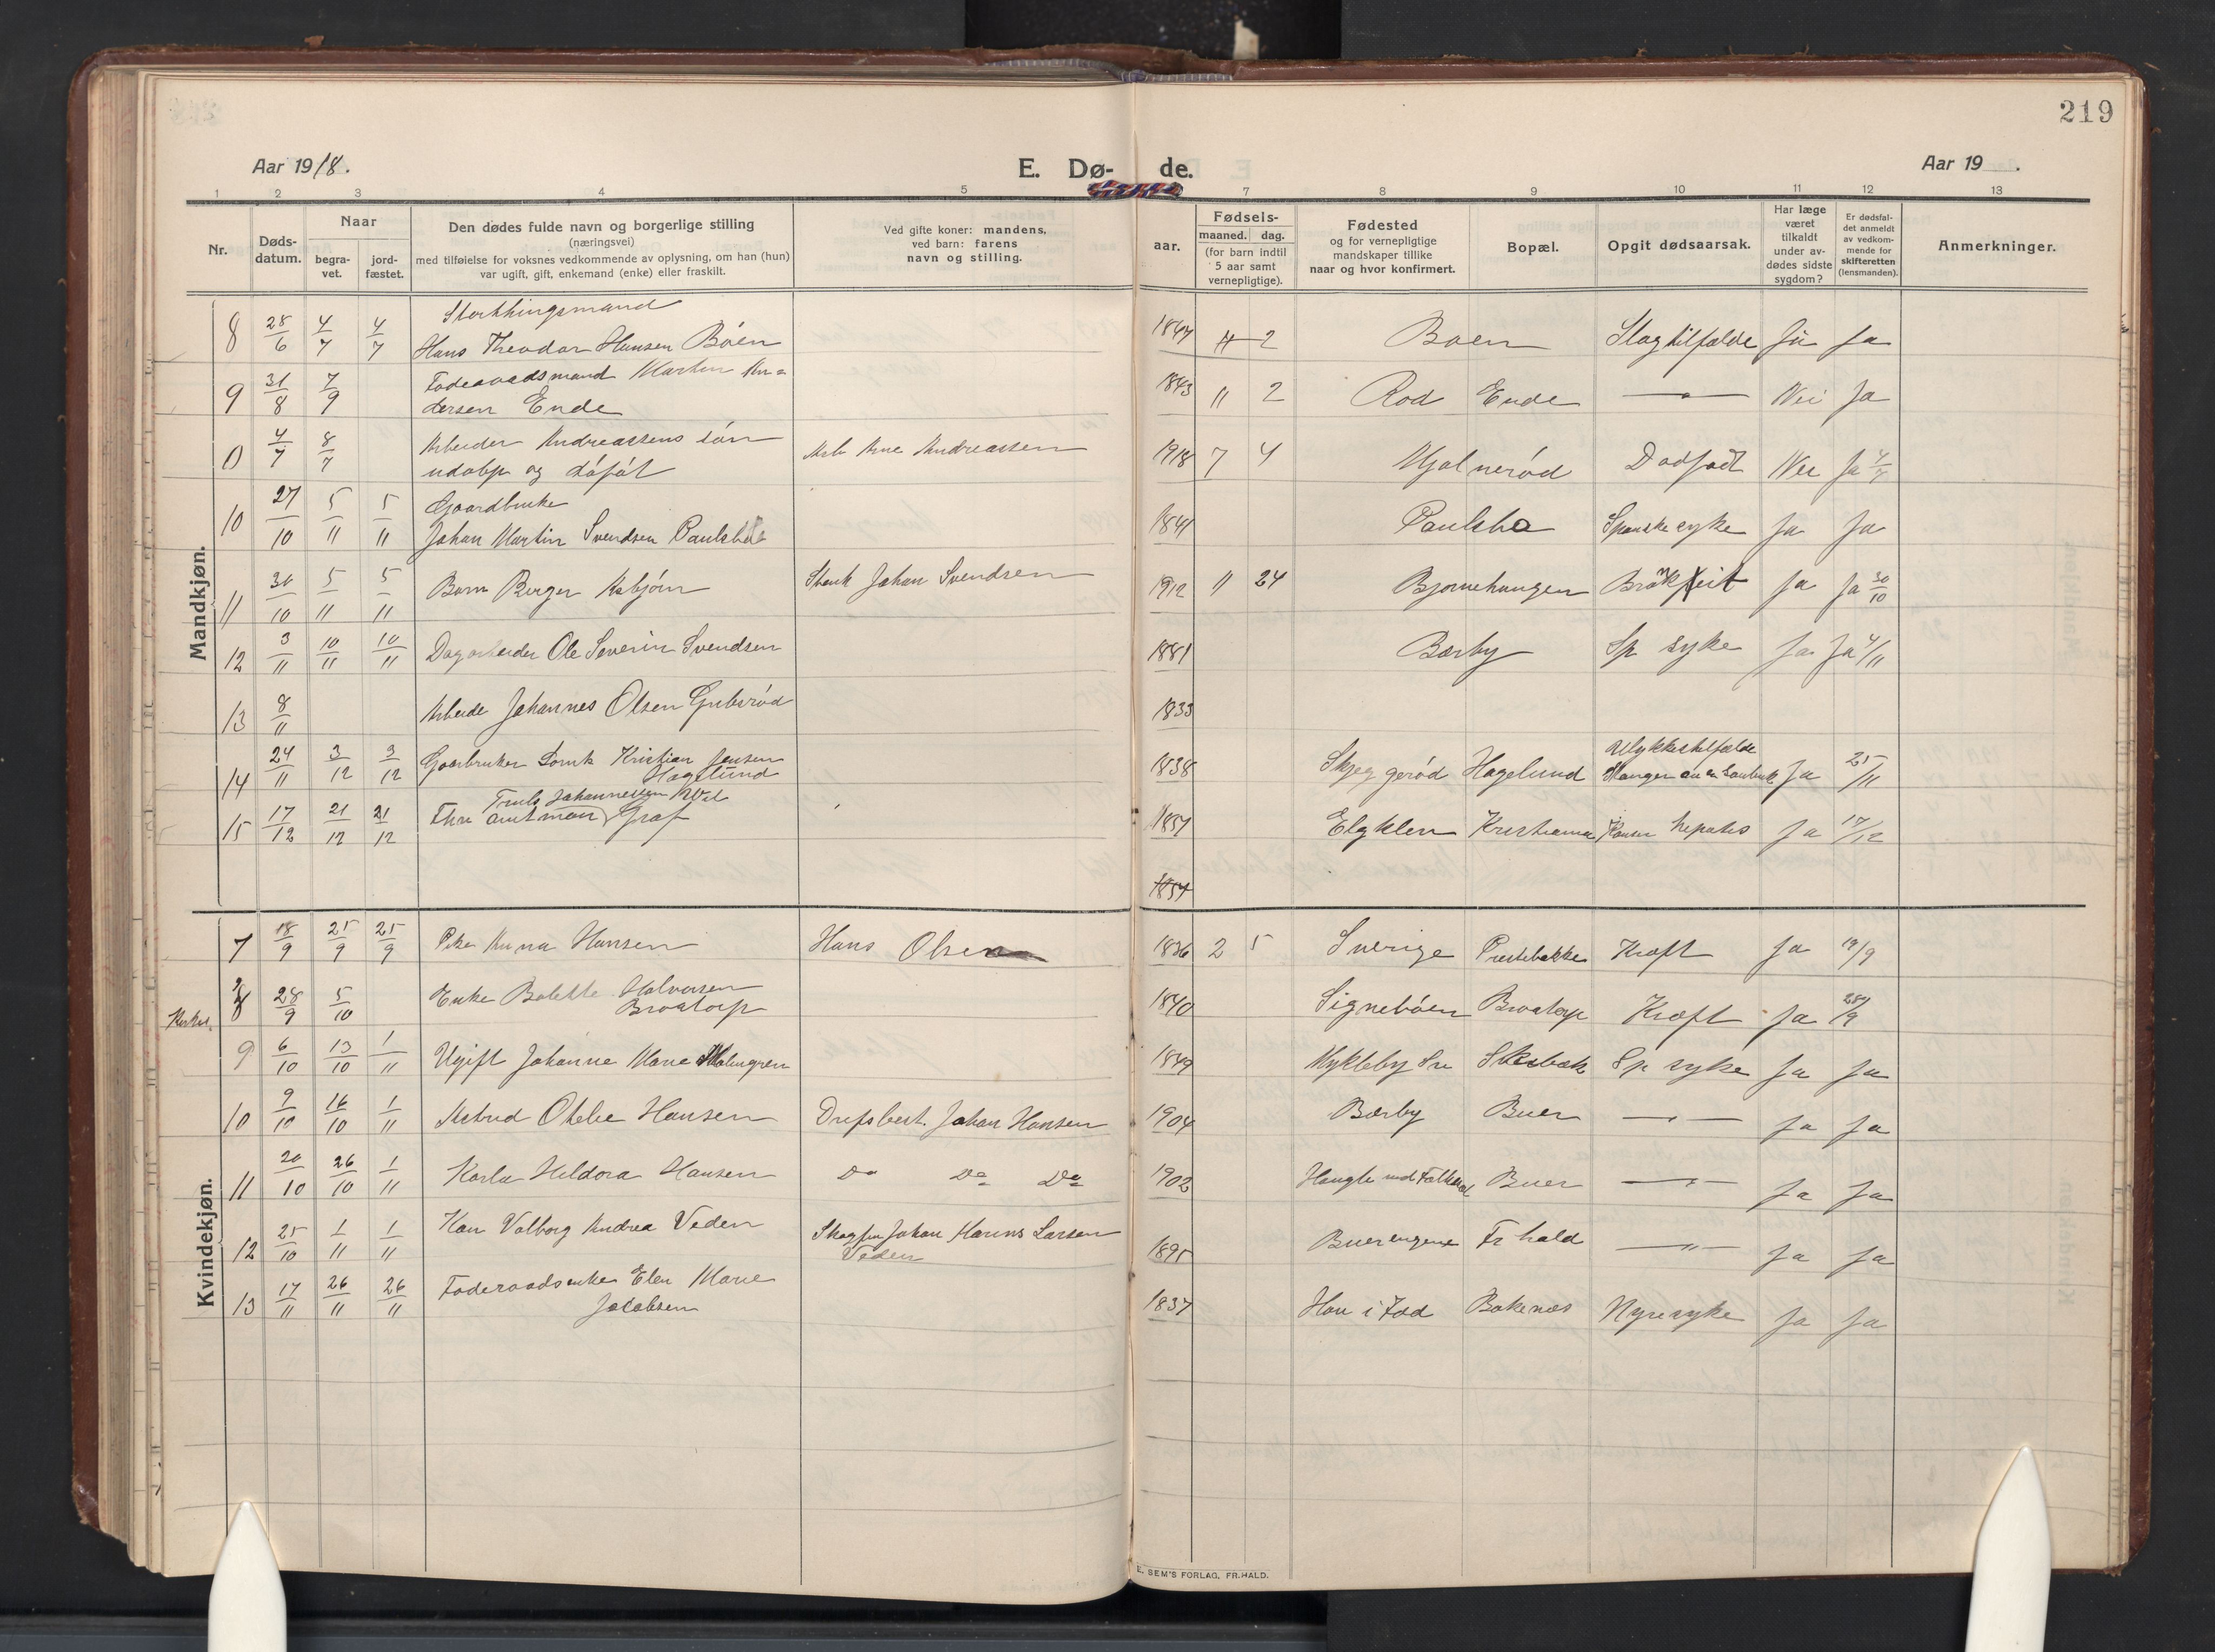 219
Aar 1918.
E. Dø-
de.
Aar 19 .
1 2 3 4 5 7 8 9 10 11 12 13
Nr.
Døds-
datum.
Naar
begra-
vet.
jord-
fæstet.
Den dødes fulde navn og borgerlige stilling
(næringsvei)
med tilføielse for voksnes vedkommende av oplysning, om han (hun)
var ugift, gift, enkemand (enke) eller fraskilt.
Ved gifte koner: mandens,
ved barn: farens
navn og stilling.
aar.
Fødsels-
maaned. dag.
(for barn indtil
5 aar samt
vernepligtige).
Fødested
og for vernepligtige
mandskaper tillike
naar og hvor konfirmert.
Bopæl.
Opgit dødsaarsak.
Har læge
været
tilkaldt
under av-
dødes sidste
sygdom?
Er dødsfal-
det anmeldt
av vedkom-
mende for
skifteretten
(lensmanden).
Anmerkninger.
Mandkjøn.
Storthingsmand
8 28/6 4/7 4/7 Hans Theodor Hansen Böen 1847 2 Boen Slagtilfælde Ja Ja
9 31/8 7/9 Föderaadsmand Martin An-
dersen Ende 1843 11 2 Rød Ende Nei Ja
0 4/7 8/7 Arbeider Andreassens sön
udöbp og döföt Arb Arne Andreassen 1918 7 4 Dödfödt Nei Ja 4/7
10 27/10 5/11 5/11 Gaardbruke
Johan Martin Svendsen Paulsbo 1841 Paulsbo Spanske syke Ja Ja
11 30/10 5/11 5/11 Barn Birger Asbjörn Johan Svendsen 1912 11 24 Bjornehaugen Ja Ja 30/10
12 3/11 10/11 10/11 Dagarbeider Ole Severin Svendsen 1881 Børby Sp syke Ja Ja 4/11
13 8/11 Arbeide Johannes Olsen Gubsröd 1833
14 24/11 3/12 3/12 Gaarbruker Kristian Jensen
Hagelund 1838 Skjeggeröd Hagelund Ulykkestilfælde
Ja 25/11
15 17/12 21/12 21/12 Truls Johannessen
amtman Graf 1851 Kristiania hepatis Ja 17/12
1854
Kvindekjøn.
7 18/9 25/9 25/9 Pike Anna Hansen Hans Olsen 1836 2 5 Sverige Prestebakke Kræft Ja 19/9
8 28/9 5/10 Enke Bolette Halvorsen
Brostorp 1840 Signeböen Brostorp Kræft Ja 28/9
9 6/10 13/10 1/11 Ugift Johanne Marie Malmgren 1849 Sp syke Ja Ja
10 9/10 16/10 1/11 Astrid Otelie Hansen Drifsbest. Johan Hansen 1904 Børby Buer Ja Ja
11 20/10 26/10 1/11 Karla Heldora Hansen Do Do Do 1902 Buer Ja Ja
12 25/10 1/11 1/11 Kone Valborg Andrea Veden Johan Larsen
Veden 1895 Buerengene Fr hald Ja Ja
13 17/11 26/11 26/11 Föderaadsenke Elen Marie
Jacobsen 1837 Hov i Idd Bakenæs Nyresyke Ja Ja
E. SEM'S FORLAG, FR.HALD.